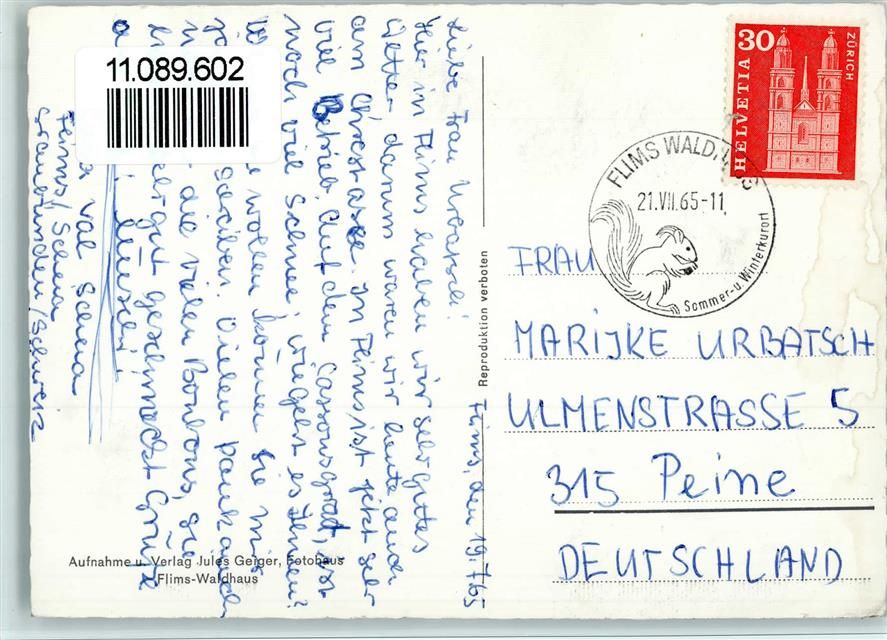 11.089.602
Flims, den 19.7.65
Liebe Frau Urbatsch!
Hier in Flims haben wir sehr gutes
Wetter darum waren wir heute auch
am Crestasee. In Flims ist jetzt sehr
viel Betrieb. Auf dem Cassonsgrat, ist
noch viel Schnee; wie geht es Ihnen?
wollen können Sie mir
schreiben. Vielen Dank auch
die vielen Bonbons, sie
gut geschmeckt Grüße
val Scheia
Flims/Scheia
Graubünden/Schweiz
Aufnahme u. Verlag Jules Geiger, Fotohaus
Flims-Waldhaus
Reproduktion verboten
HELVETIA
30
ZÜRICH
FLIMS WALDHAUS
21.VII.65-11
Sommer-u. Winterkurort
FRAU
MARIJKE URBATSCH
ULMENSTRASSE 5
315 Peine
DEUTSCHLAND